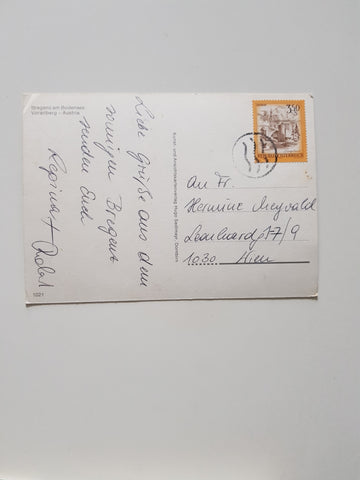 Bregenz am Bodensee
Vorarlberg – Austria
Liebe Grüße aus dem
sonnigen Bregenz
senden Euch
Regina + Robert
1021
Kunst- und Ansichtskartenverlag Hugo Sedlmayr, Dornbirn
3.50
REPUBLIK ÖSTERREICH
An Fr.
Hermine Meywald
Leonhardg. 17/9
1030 Wien